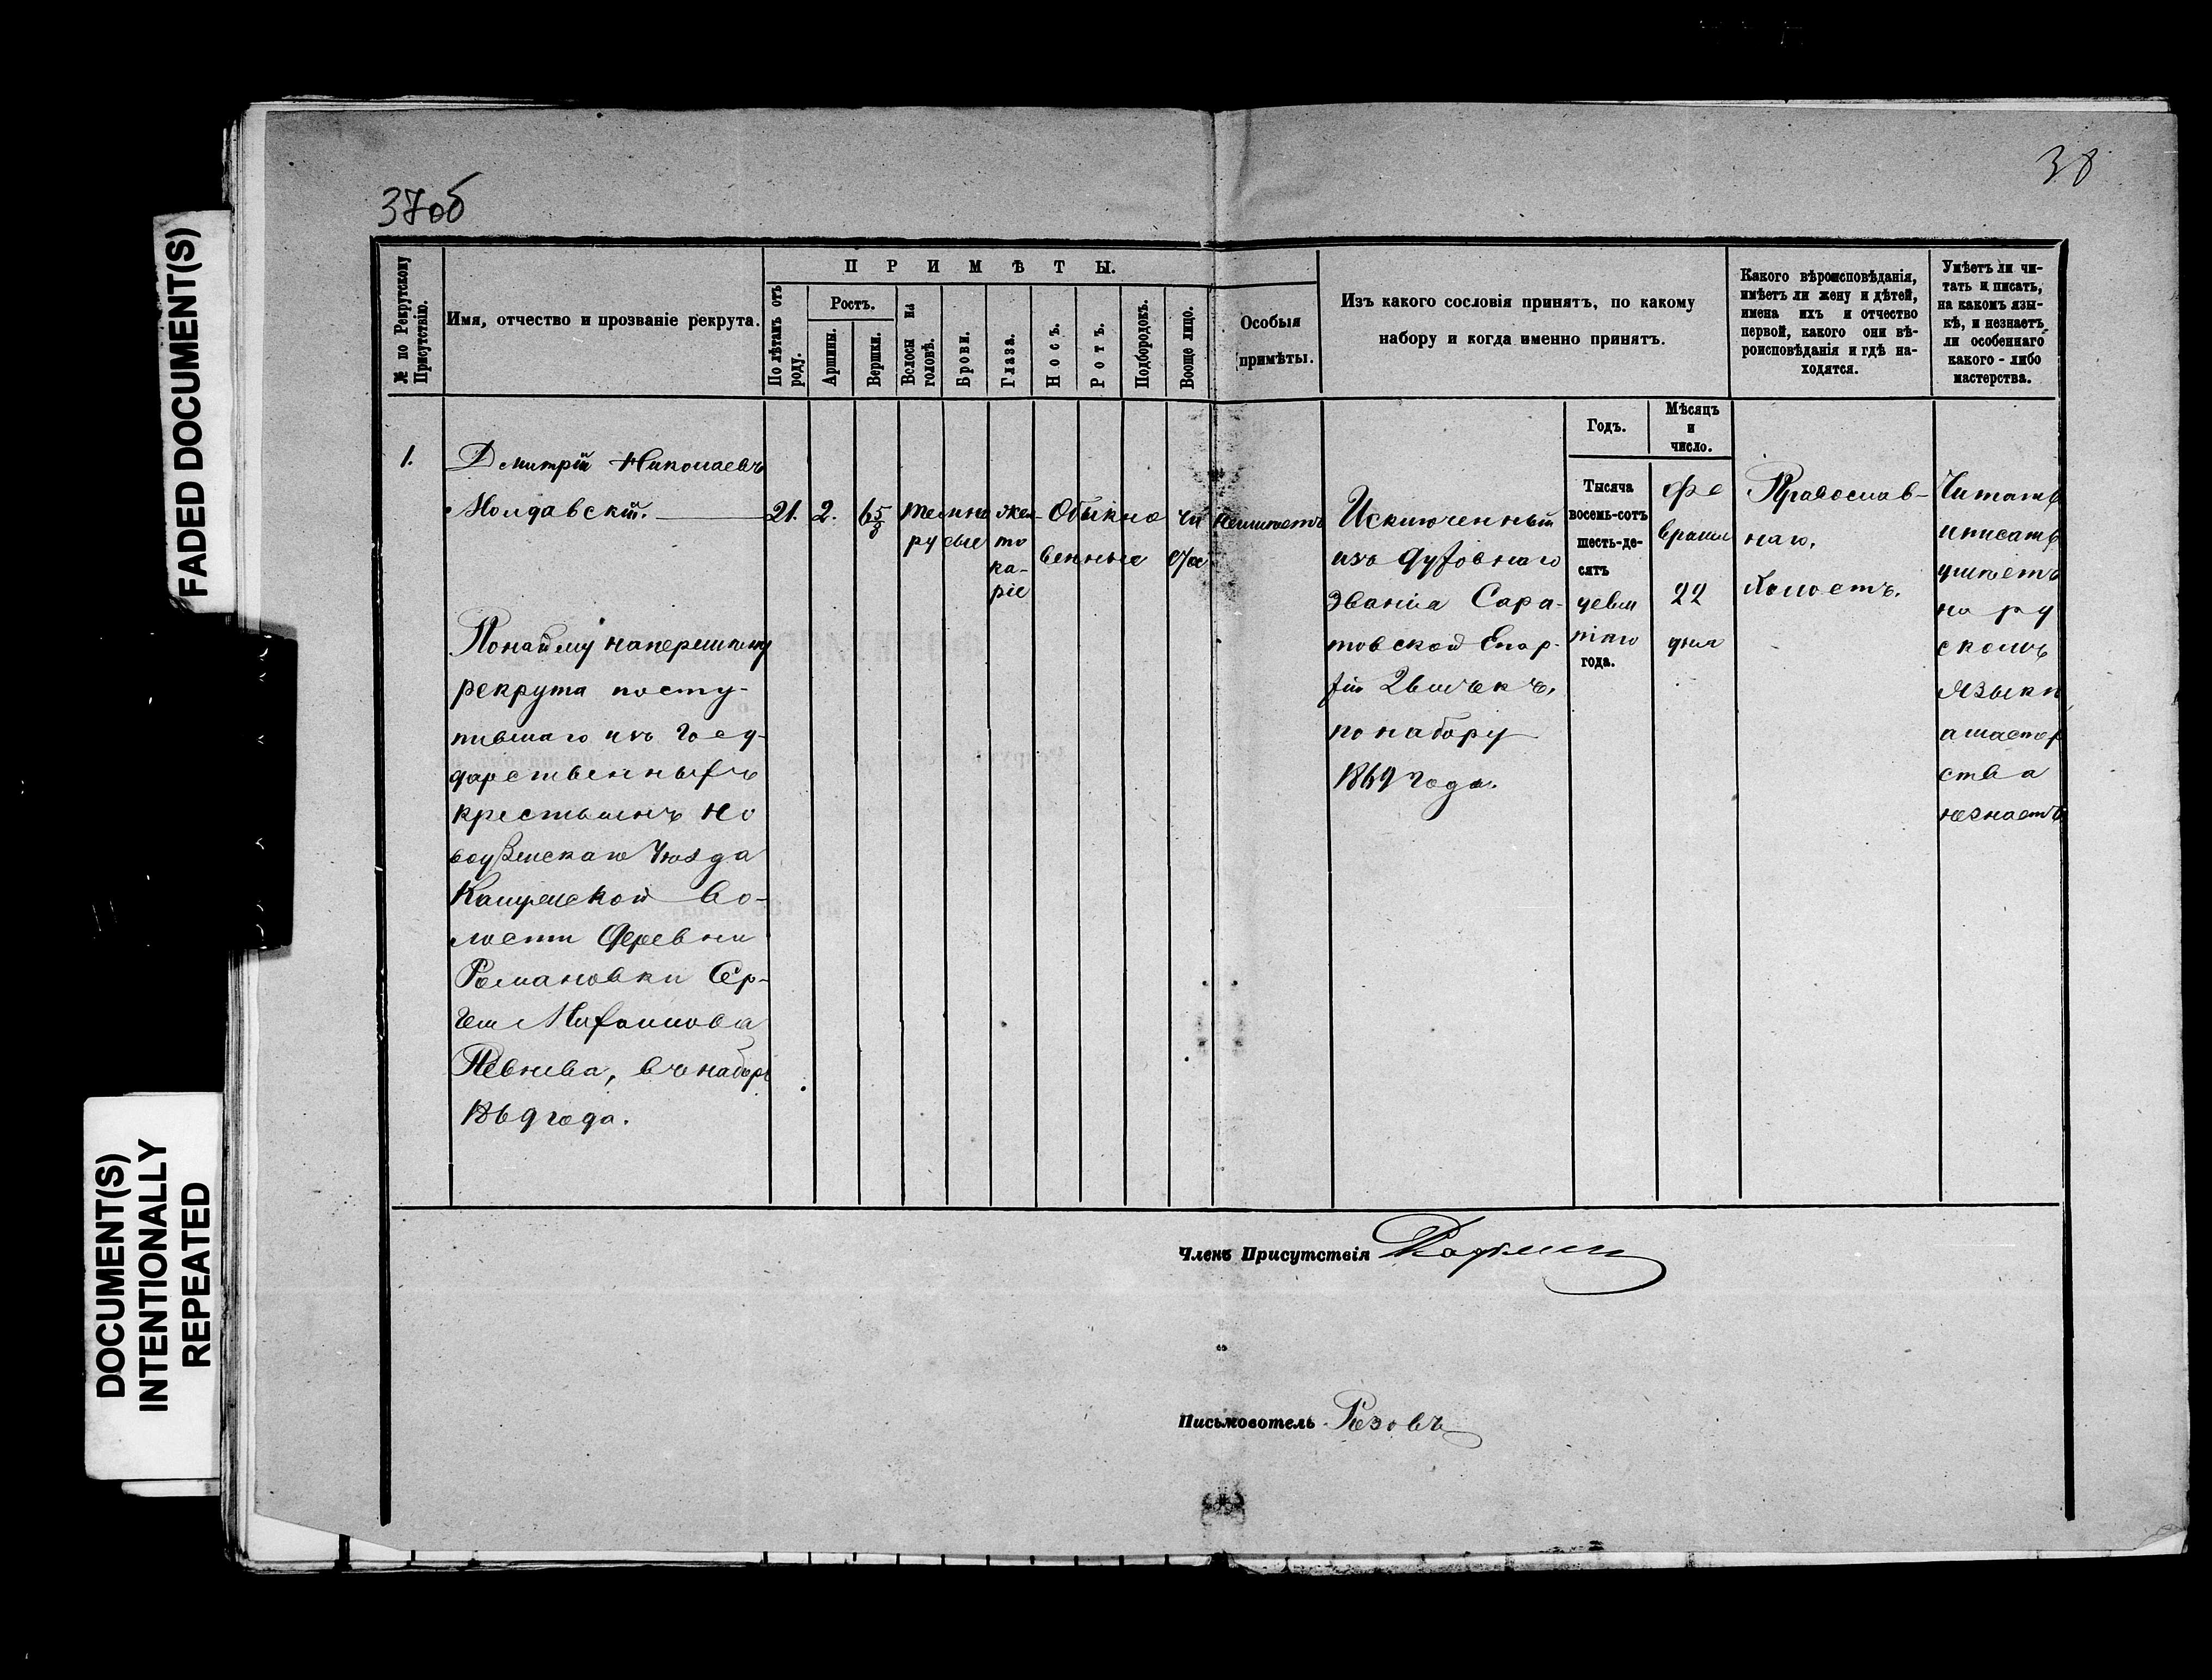 FADED DOCUMENT(S)
DOCUMENT(S)
INTENTIONALLY
REPEATED
37об
38
№ по Рекрутскому
Присутствію.
Имя, отчество и прозваніе рекрута.
ПРИМѢТЫ.
По лѣтамъ отъ
роду.
Ростъ.
Аршины.
Вершки.
Волосы на
головѣ.
Брови.
Глаза.
Носъ.
Ротъ.
Подбородокъ.
Вооще лицо.
Особыя
примѣты.
Изъ какого сословія принятъ, по какому
набору и когда именно принятъ.
Какого вѣроисповѣданія,
имѣетъ ли жену и дѣтей,
имена ихъ и отчество
первой, какого они вѣ-
роисповѣданія и гдѣ на-
ходятся.
Умѣетъ ли чи-
тать и писать,
на какомъ язы-
кѣ, и незнаетъ
ли особеннаго
какого-либо
мастерства.
Годъ.
Мѣсяцъ
и
число.
1.
Дмитрій Николаевъ
Молдавскій.
21.
2.
6 5/8
темно
русые
жел
то
ка-
ріе
Обыкно
венные
чи
стое
неимѣетъ
Понайму наперемѣну
рекрута посту-
пившаго изъ Госу-
дарственныхъ
крестьянъ Но
воузенскаго Уѣзда
во-
лости Деревни
Романовки Сер-
гея Михайлова
въ наборъ
1869 года.
Исключенный
изъ духовнаго
званія Сара-
товской Епар-
хіи
по набору
1869 года.
Тысяча
восемь-сотъ
шесть-де-
сятъ
девя
таго
года.
Фе
враля
22
дня
Православ-
наго,
Холостъ.
Читать
иписать
умѣетъ
на ру
скомъ
языкѣ
амастер
ства
незнаетъ
Членъ Присутствія
Письмоводитель Розовъ